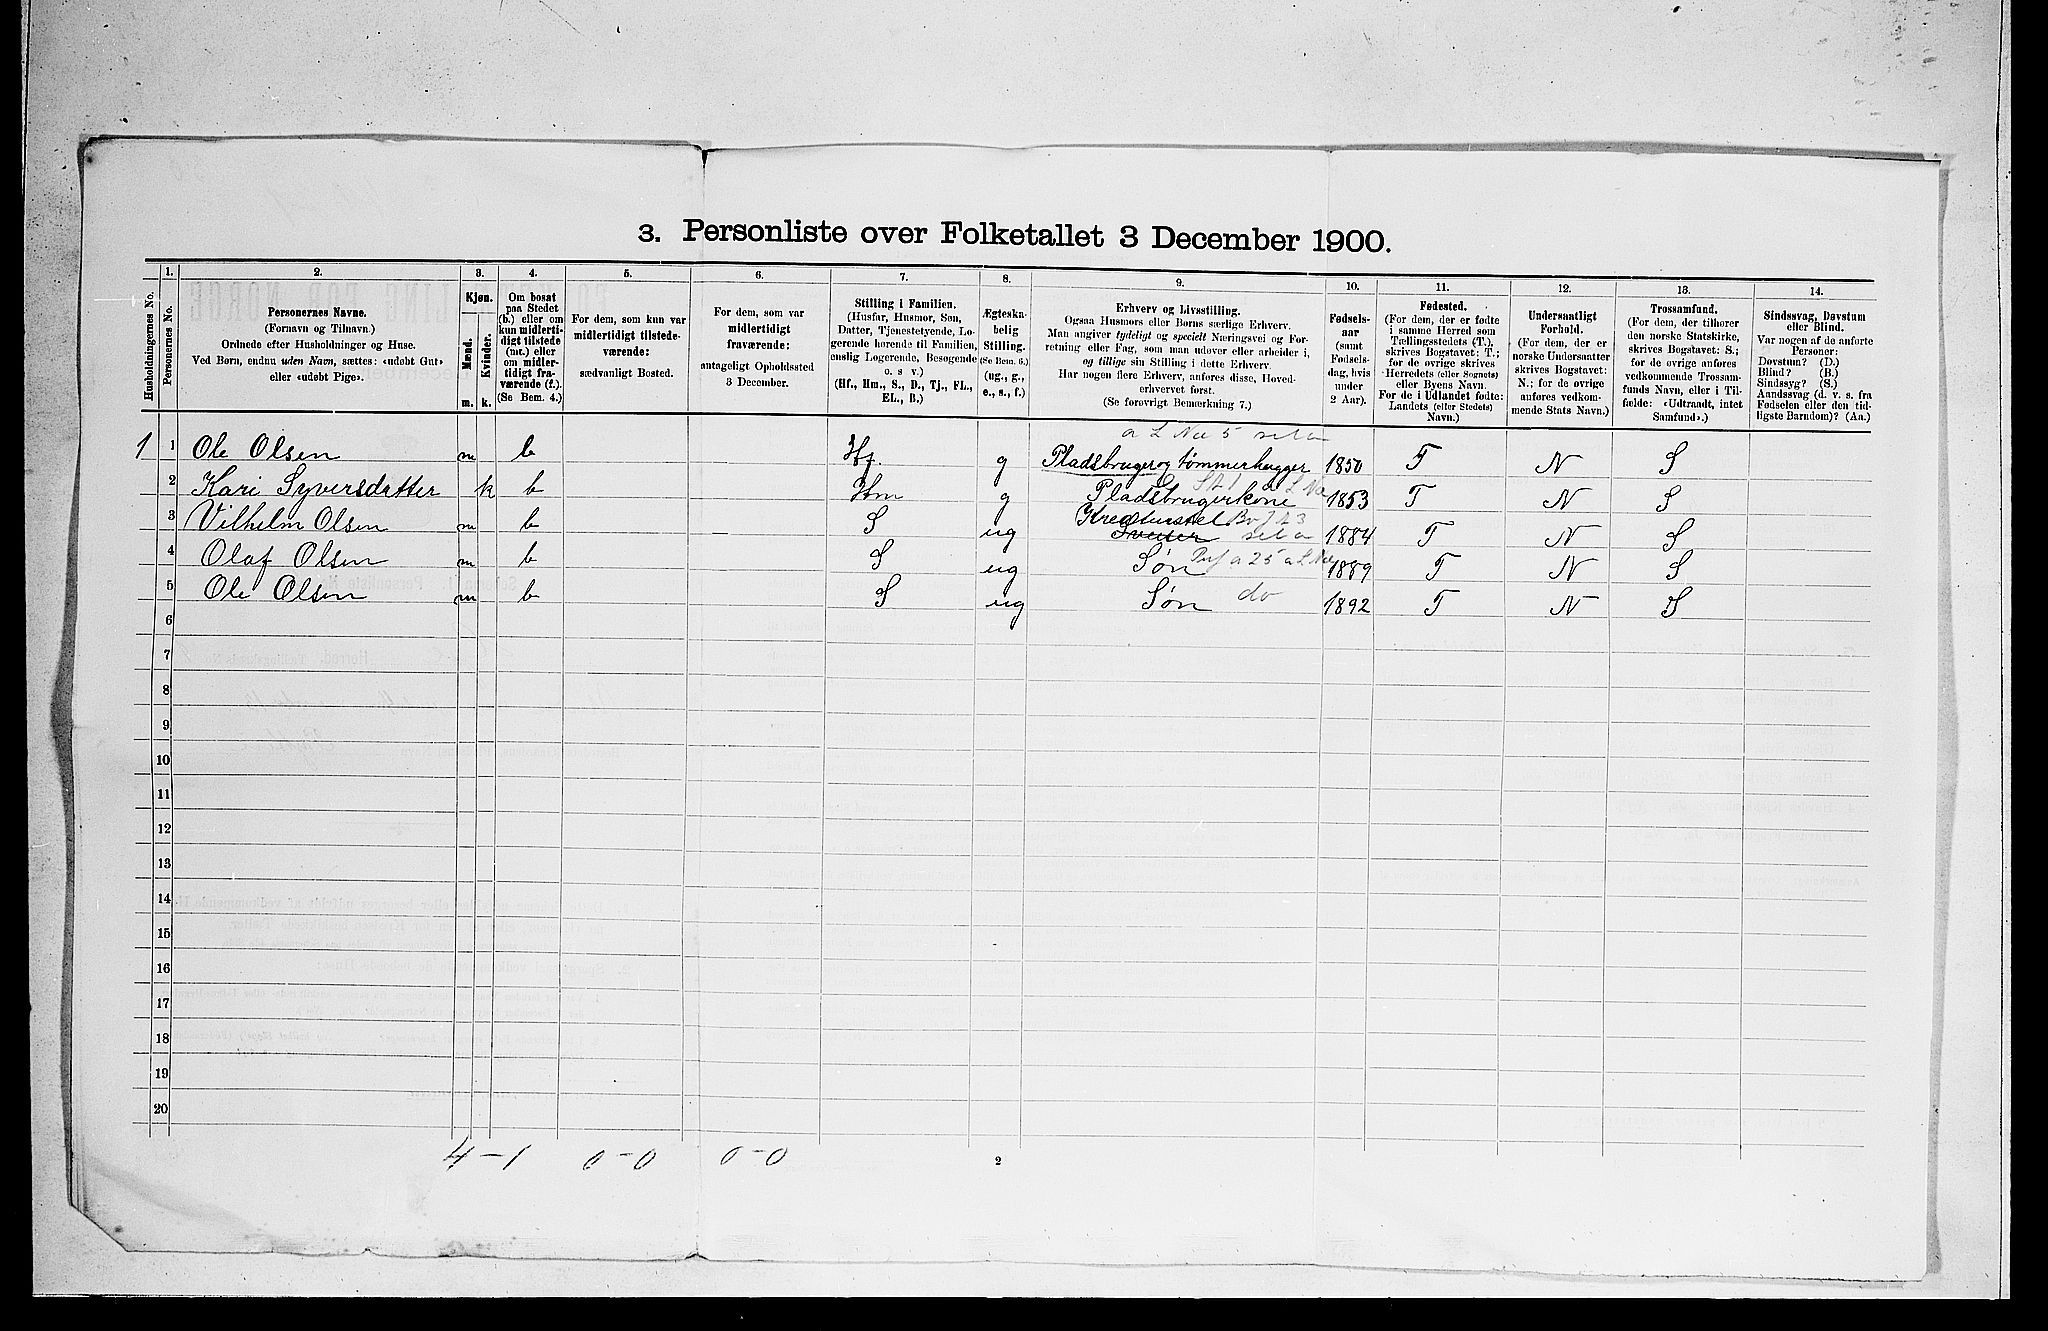 3. Personliste over Folketallet 3 December 1900.
Husholdningernes No.
1.
Personernes No.
2.
Personernes Navne.
(Fornavn og Tilnavn.)
Ordnede efter Husholdninger og Huse.
Ved Børn, endnu uden Navn, sættes: «udøbt Gut»
eller «udøbt Pige».
3.
Kjøn.
Mænd.
Kvinder.
m.
k.
4.
Om bosat
paa Stedet
(b.) eller om
kun midlerti-
digt tilstede
(mt.) eller
om midler-
tidigt fra-
værende (f.).
(Se Bem. 4.)
5.
For dem, som kun var
midlertidigt tilstede-
værende:
sædvanligt Bosted.
6.
For dem, som var
midlertidigt
fraværende:
antageligt Opholdssted
3 December.
7.
Stilling i Familien.
(Husfar, Husmor, Søn,
Datter, Tjenestetyende, Lo-
gerende hørende til Familien,
enslig Logerende, Besøgende
o. s v.)
(Hf., Hm., S., D., Tj., FL.,
EL., B.)
8.
Ægteska-
belig
Stilling.
(Se Bem. 6.)
(ug., g.,
e., s., f.)
9.
Erhverv og Livsstilling.
Ogsaa Husmors eller Børns særlige Erhverv.
Man angiver tydeligt og specielt Næringsvei og For-
retning eller Fag, som man udøver eller arbeider i,
og tillige sin Stilling i dette Erhverv.
Har nogen flere Erhverv, anføres disse, Hoved-
erhvervet først.
(Se forøvrigt Bemærkning 7.)
10.
Fødsels-
aar
(samt
Fødsels-
dag, hvis
under
2 Aar).
11.
Fødested.
(For dem, der er fødte
i samme Herred som
Tællingsstedets (T.),
skrives Bogstavet: T.;
for de øvrige skrives
Herredets (eller Sognets)
eller Byens Navn.
For de i Udlandet fødte:
Landets (eller Stedets)
Navn.)
12.
Undersaatligt
Forhold.
(For dem, der er
norske Undersaatter
skrives Bogstavet:
N.; for de øvrige
anføres vedkom-
mende Stats Navn.)
13.
Trossamfund.
(For dem, der tilhører
den norske Statskirke,
skrives Bogstavet: S.;
for de øvrige anføres
vedkommende Trossam-
funds Navn, eller i Til-
fælde: «Udtraadt, intet
Samfund».)
14.
Sindssvag, Døvstum
eller Blind.
Var nogen af de anførte
Personer:
Døvstum? (D.)
Blind? (B.)
Sindssyg? (S.)
Aandssvag (d. v. s. fra
Fødselen eller den tid-
ligste Barndom)? (Aa.)
1 1 Ole Olsen m b Hf. g Pladsbruger og tømmerhugger 1850 T N S
2 Kari Syversdatter k b Hm g Pladsbrugerkone 1853 T N S
3 Vilhelm Olsen m b S ug Kreaturstel 1884 T N S
4 Olaf Olsen m b S ug Søn 1889 T N S
5 Ole Olsen m b S ug Søn do 1892 T N S
6
7
8
9
10
11
12
13
14
15
16
17
18
19
20
4 - 1 0 - 0 0 - 0
2